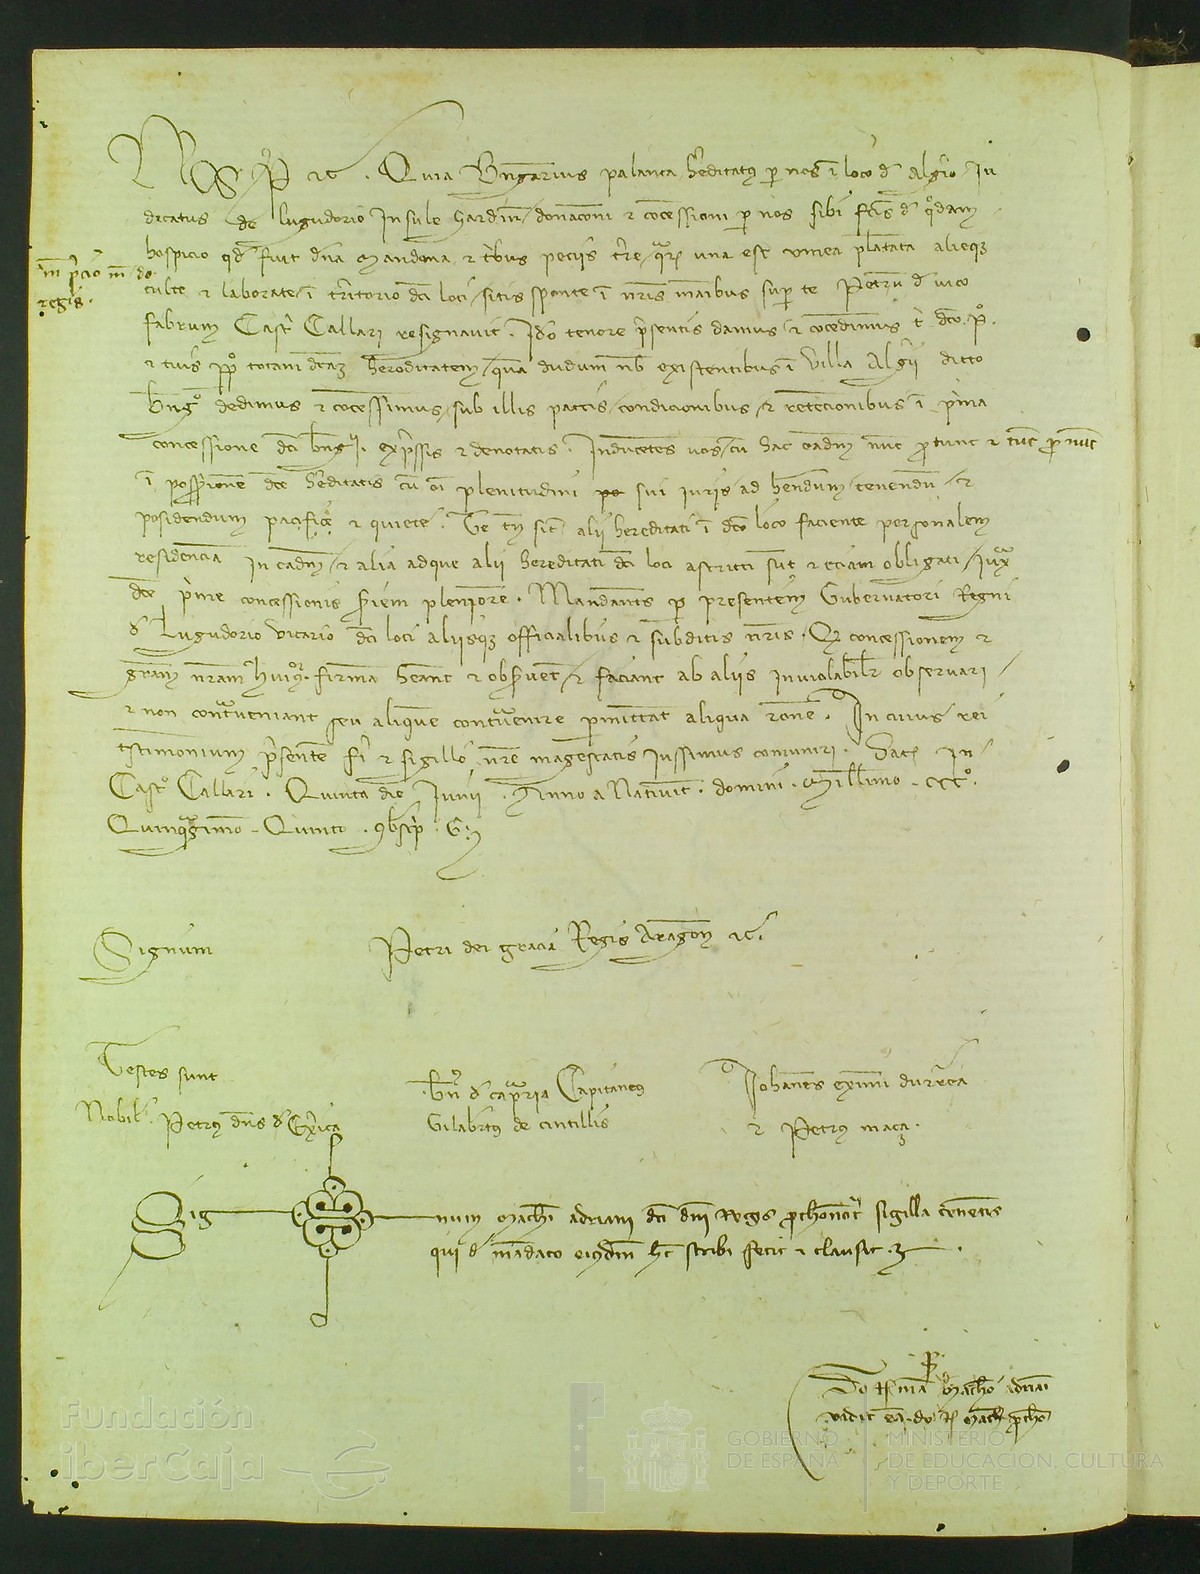 Nos P etc. Quia Bngarius palanca hereditatus per nos in loco de Algerio Ju
dicatus de lugudorio Insule Sardinie donacioni et concessioni per nos sibi fctis de quodam
hospicio quod fuit dna Mandona et tribus peciis terre quarum una est vinea plantata alieque
culte et laborate in territorio dci loci sitis sponte in nris manibus super te Petrum de vico
fabrum Castri Callari resignavit. Ideo tenore presentis damus et concedimus tibi dco P.
et tuis perpetuo totam dcam hereditatem quam dudum nobis existentibus in villa Algerii dicto
Bngo dedimus et concessimus sub illis pactis condicionibus et retencionibus in prima
concessione dci bngi expressis et denotatis. Inducentes vos cum hac eadem nunc pro tunc et tunc pro nunc
in possessionem dce hereditatis cum omni plenitudini sui iuris ad habendum tenendum et
posidendum pacifice et quiete. Te tamen sicut alii hereditati in dco loco faciente personalem
residenciam in eadem et alia ad que alii hereditati dci loci astricti sunt et eciam obligati iuxta
dce prime concessionis seriem pleniorem. Mandantes per presentem Gubernatori Regni
de Lugudorio vicario dci loci aliisque officialibus et subditis nris. Quod concessionem et
graciam nram huiusmodi firmam habeant et observent et faciant ab aliis inviolabiliter observari
et non contraveniant seu aliquem contravenire permittat aliqua racione. In cuius rei
testimonium presentem fieri et sigillo nre magestatis Jussimus comuniri. Dat in
Castro Callari. Quinta die Junii. Anno a Nativit. domini. Millimo CCCo.
Quinquagesimo Quinto.
Signum Petri dei gracia Regis Aragon etc.
Testes sunt
Nobil. Petrus dns de Exerica
Bn de capraria Capitaneus
Gilabertus de cintillis
Johannes eximini durrea
et Petrus maça.
Sig num Mathei adriani dci dni Regis prothonotarii sigilla tenentis
qui de mandato eiusdem hec scribi fecit et clausit.
Dns Rex mandavit Matheo adriani
Fundación
iberCaja
GOBIERNO
DE ESPAÑA
MINISTERIO
DE EDUCACIÓN, CULTURA
Y DEPORTE